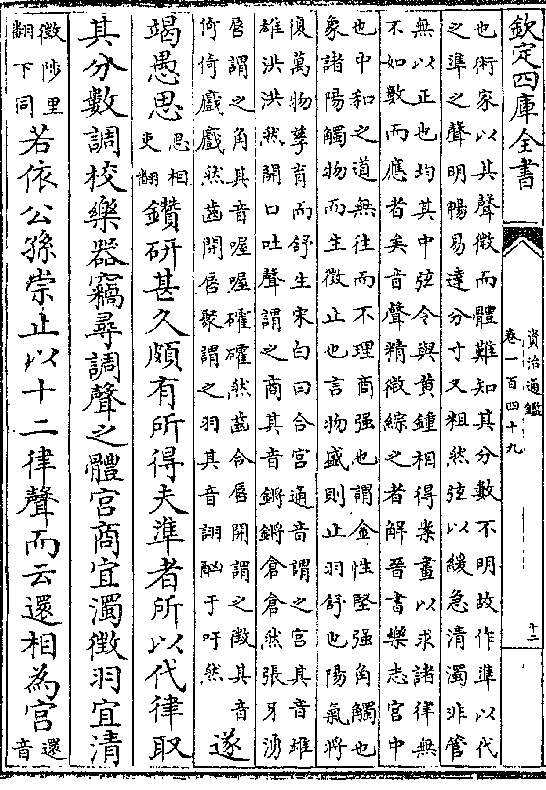 欽定四庫全書
資治通鑑
卷一百四十九
十二
也術家以其聲微而體難知其分數不明故作準以代
之準之聲明暢易達分寸又粗然弦以緩急清濁非管
無以正也均其中弦令與黄鍾相得案畫以求諸律無
不如數而應者矣音聲精微綜之者解晉書樂志宫中
也中和之道無往而不理商强也謂金性堅强角觸也
象諸陽觸物而生徵止也言物盛則止羽舒也陽氣將
復萬物孳育而舒生宋白曰合宫通音謂之宫其音雄
雄洪洪然開口吐聲謂之商其音鏘鏘倉倉然張牙湧
唇謂之角其音喔喔確確然齒合唇開謂之徵其音
倚倚戲戲然齒開唇聚謂之羽其音詡酗于吁然
遂
竭愚思思相吏翻鑽研甚久頗有所得夫準者所以代律取
其分數調校樂器竊尋調聲之體宫商宜濁徵羽宜清
徵陟里翻下同若依公孫崇止以十二律聲而云還相為宫還音